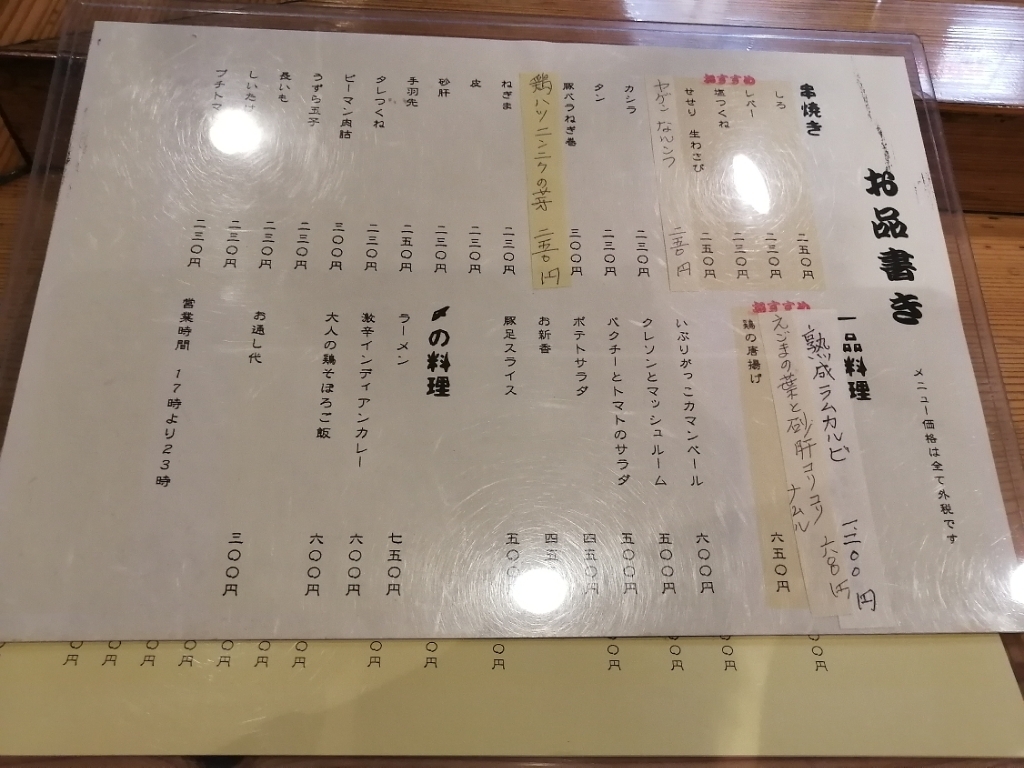 お品書き
メニュー価格は全て外税です
串焼き
しろ 二五〇円
おすすめ
レバー 二三〇円
塩つくね 二三〇円
せせり 生わさび 二五〇円
ヤゲン なんこつ 二五〇円
カシラ 二三〇円
タン 二三〇円
豚バラねぎ巻 三〇〇円
鶏ハツニンニクの芽 二五〇円
ねぎま 二三〇円
皮 二三〇円
砂肝 二三〇円
手羽先 二五〇円
タレつくね 二三〇円
ピーマン肉詰 三〇〇円
うずら玉子 二三〇円
長いも 二三〇円
しいたけ 二三〇円
プチトマ 二三〇円
一品料理
おすすめ
熟成ラムカルビ 一二〇〇円
えごまの葉と砂肝コリコリナムル 六八〇円
鶏の唐揚げ 六五〇円
いぶりがっこカマンベール 六〇〇円
クレソンとマッシュルーム 五〇〇円
パクチーとトマトのサラダ 五〇〇円
ポテトサラダ 四五〇円
お新香 四五
豚足スライス 五〇
〆の料理
ラーメン 七五〇円
激辛インディアンカレー 六〇〇円
大人の鶏そぼろご飯 六〇〇円
お通し代 三〇〇円
営業時間 17時より23時